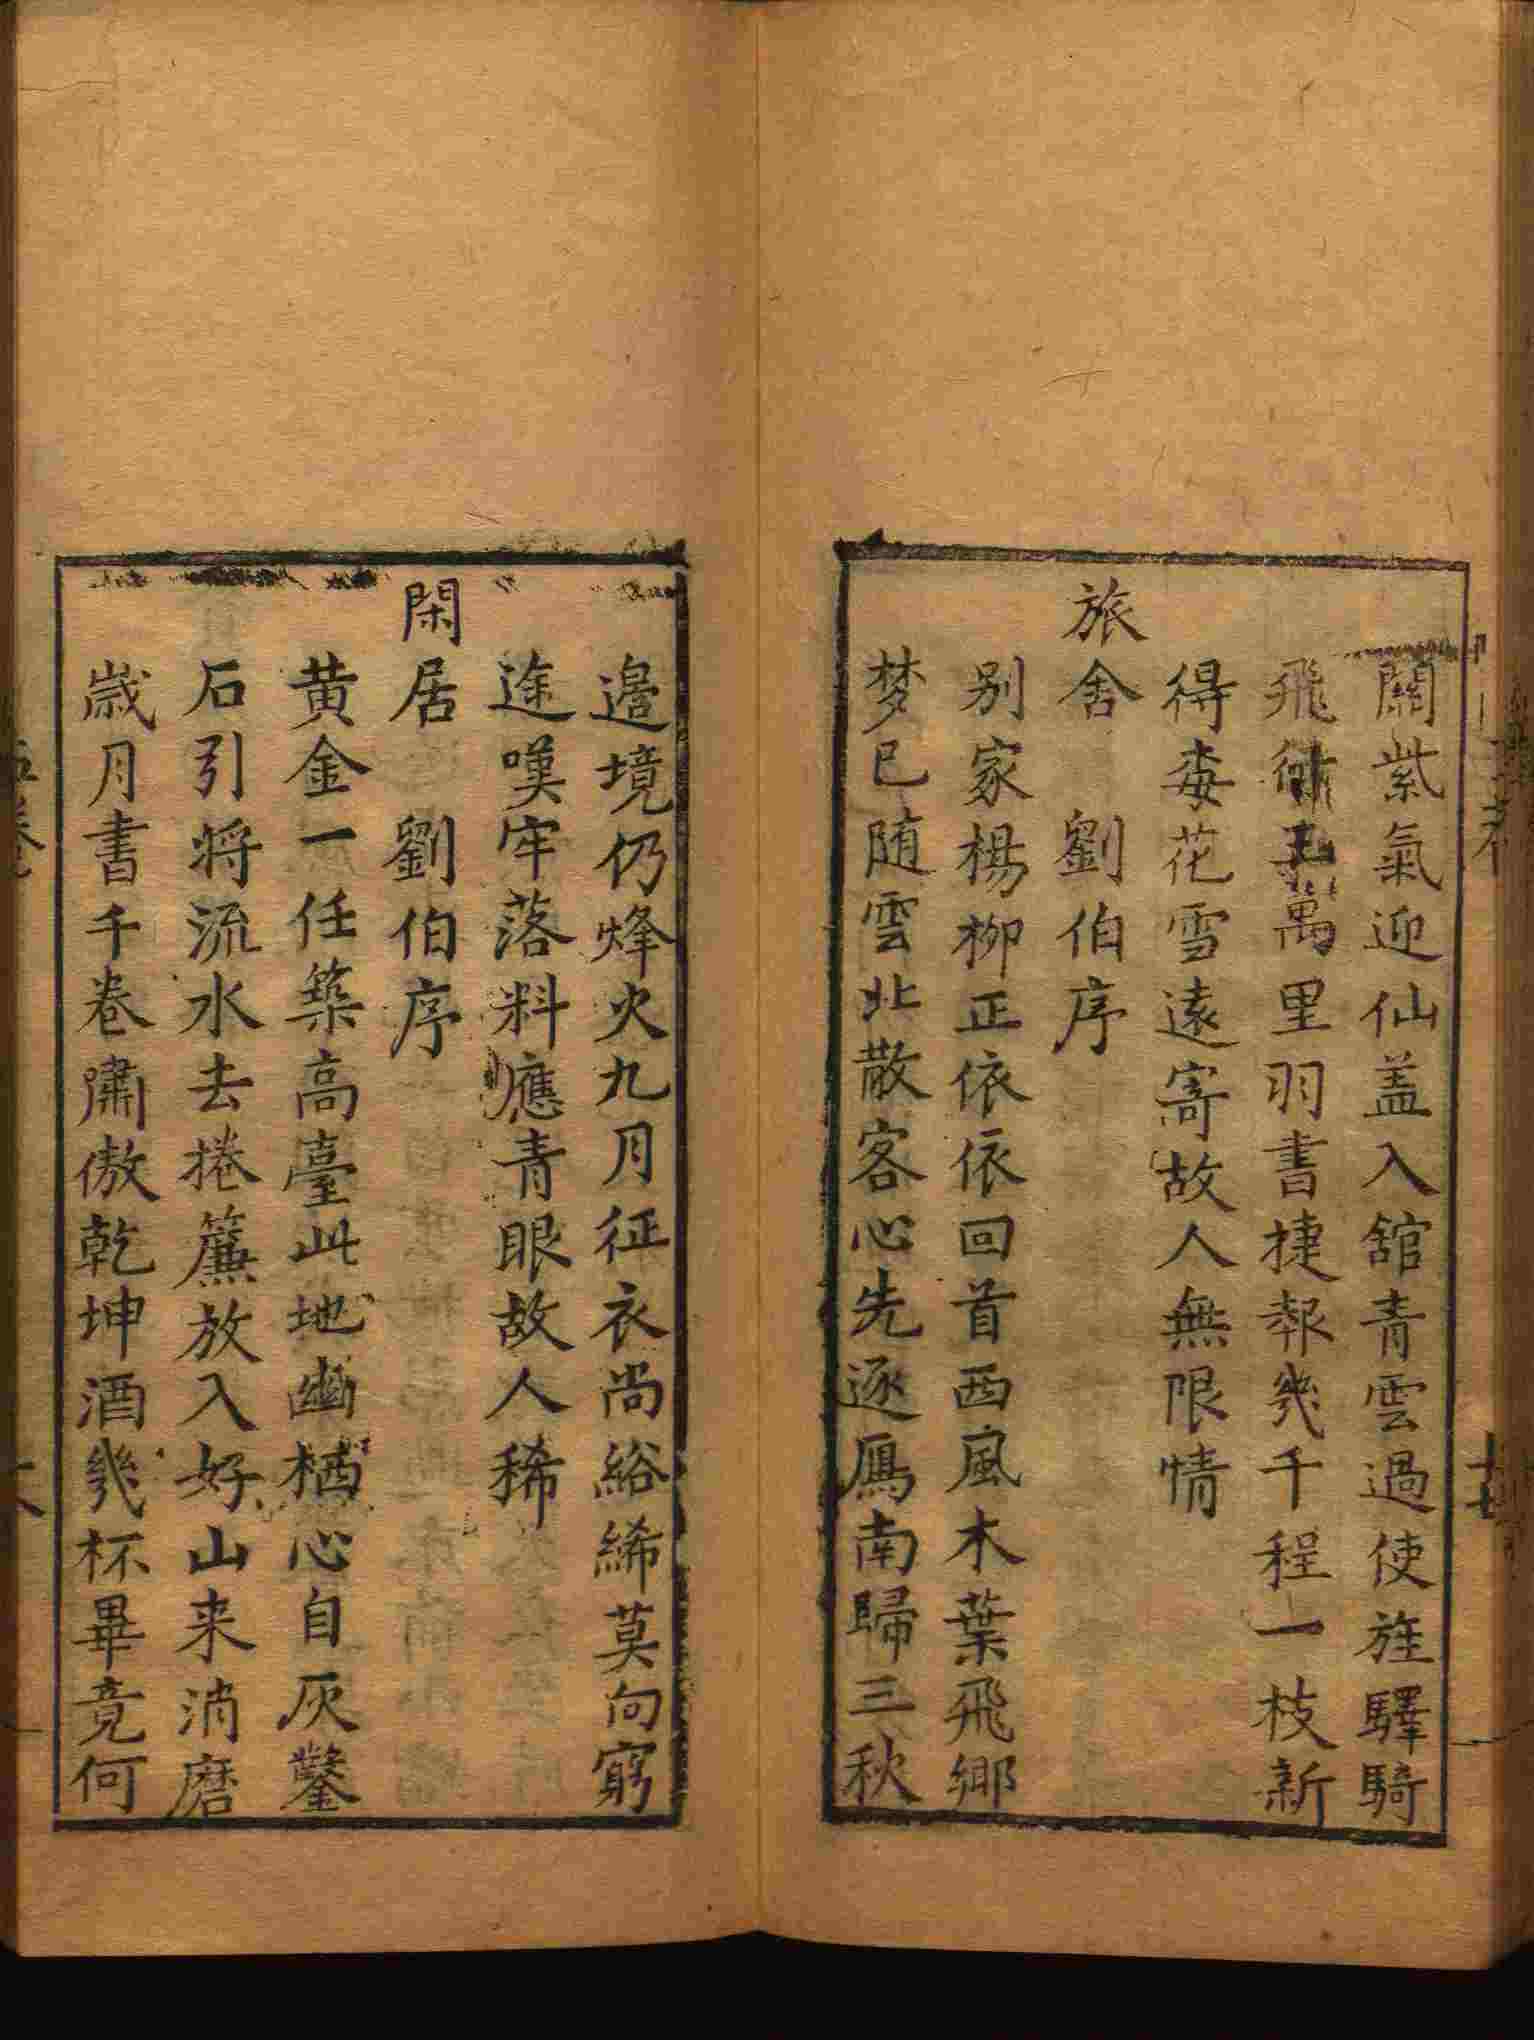 關紫氣迎仙盖入舘青雲過使旌驛騎
飛萬里羽書捷報㡬千程一枝新
得毎花雪遠寄故人無限情
旅舍　劉伯序
别家楊柳正依依回首西風木葉飛鄉
梦已随雲北散客心先逐鴈南歸三秋
邉境仍烽火九月征衣尚綌絺莫向窮
途嘆牢落料應青眼故人稀
閑居　劉伯序
黄金一任築高臺此地幽栖心自灰鑿
石引将流水去捲簾放入好山来消磨
歲月書千卷嘯傲乾坤酒㡬杯畢竟何